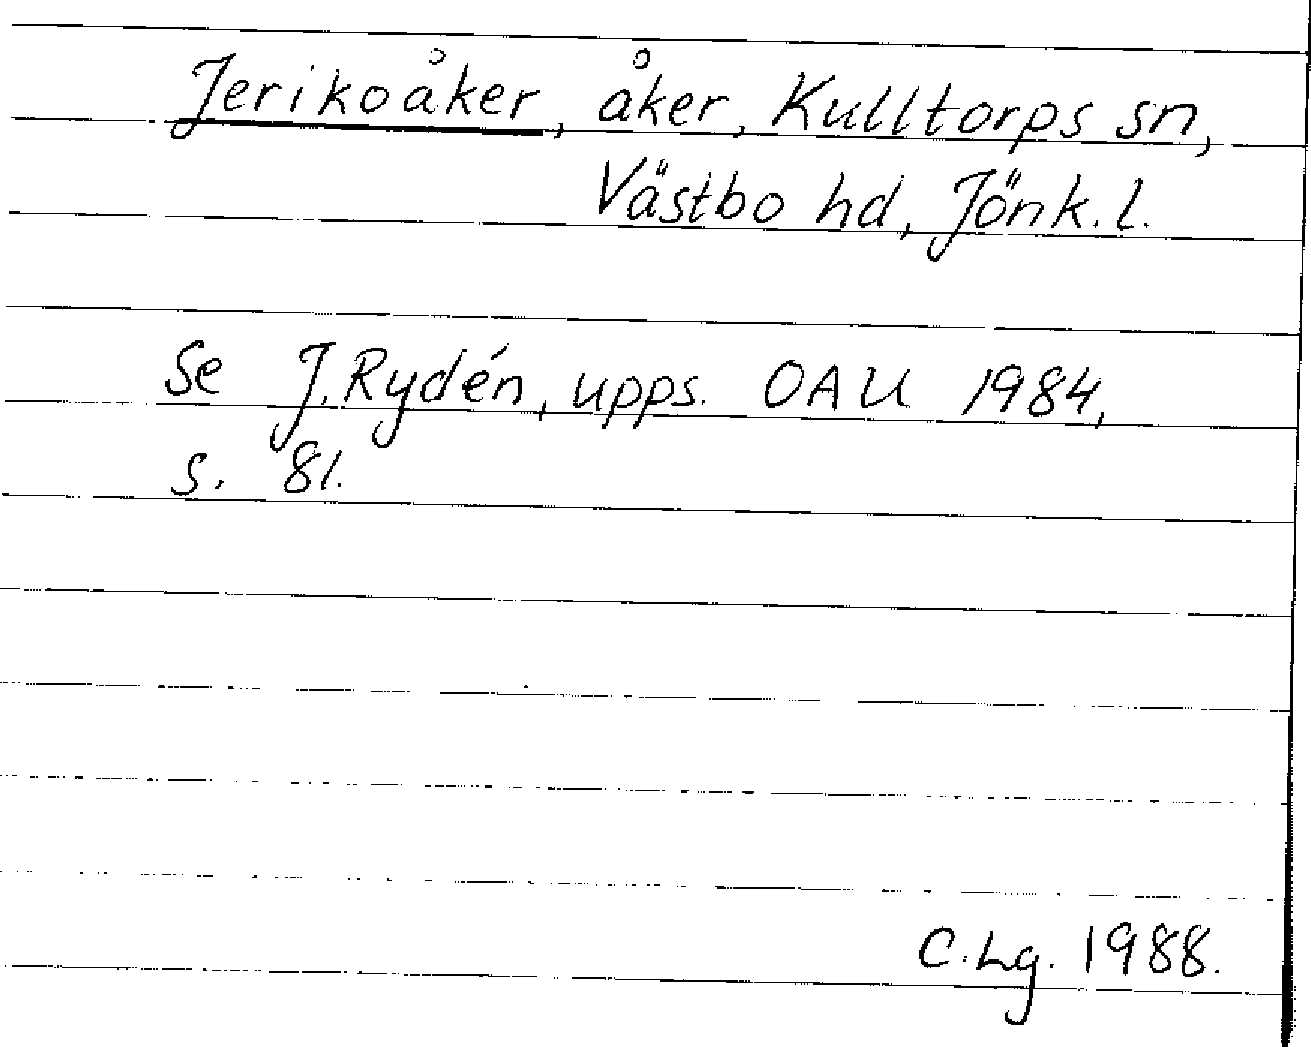 Jerikoåker, åker, Kulltorps sn,
Västbo hd, Jönk. l.
Se J. Rydén, upps. OAU 1984,
s. 81.
C. Lg. 1988.